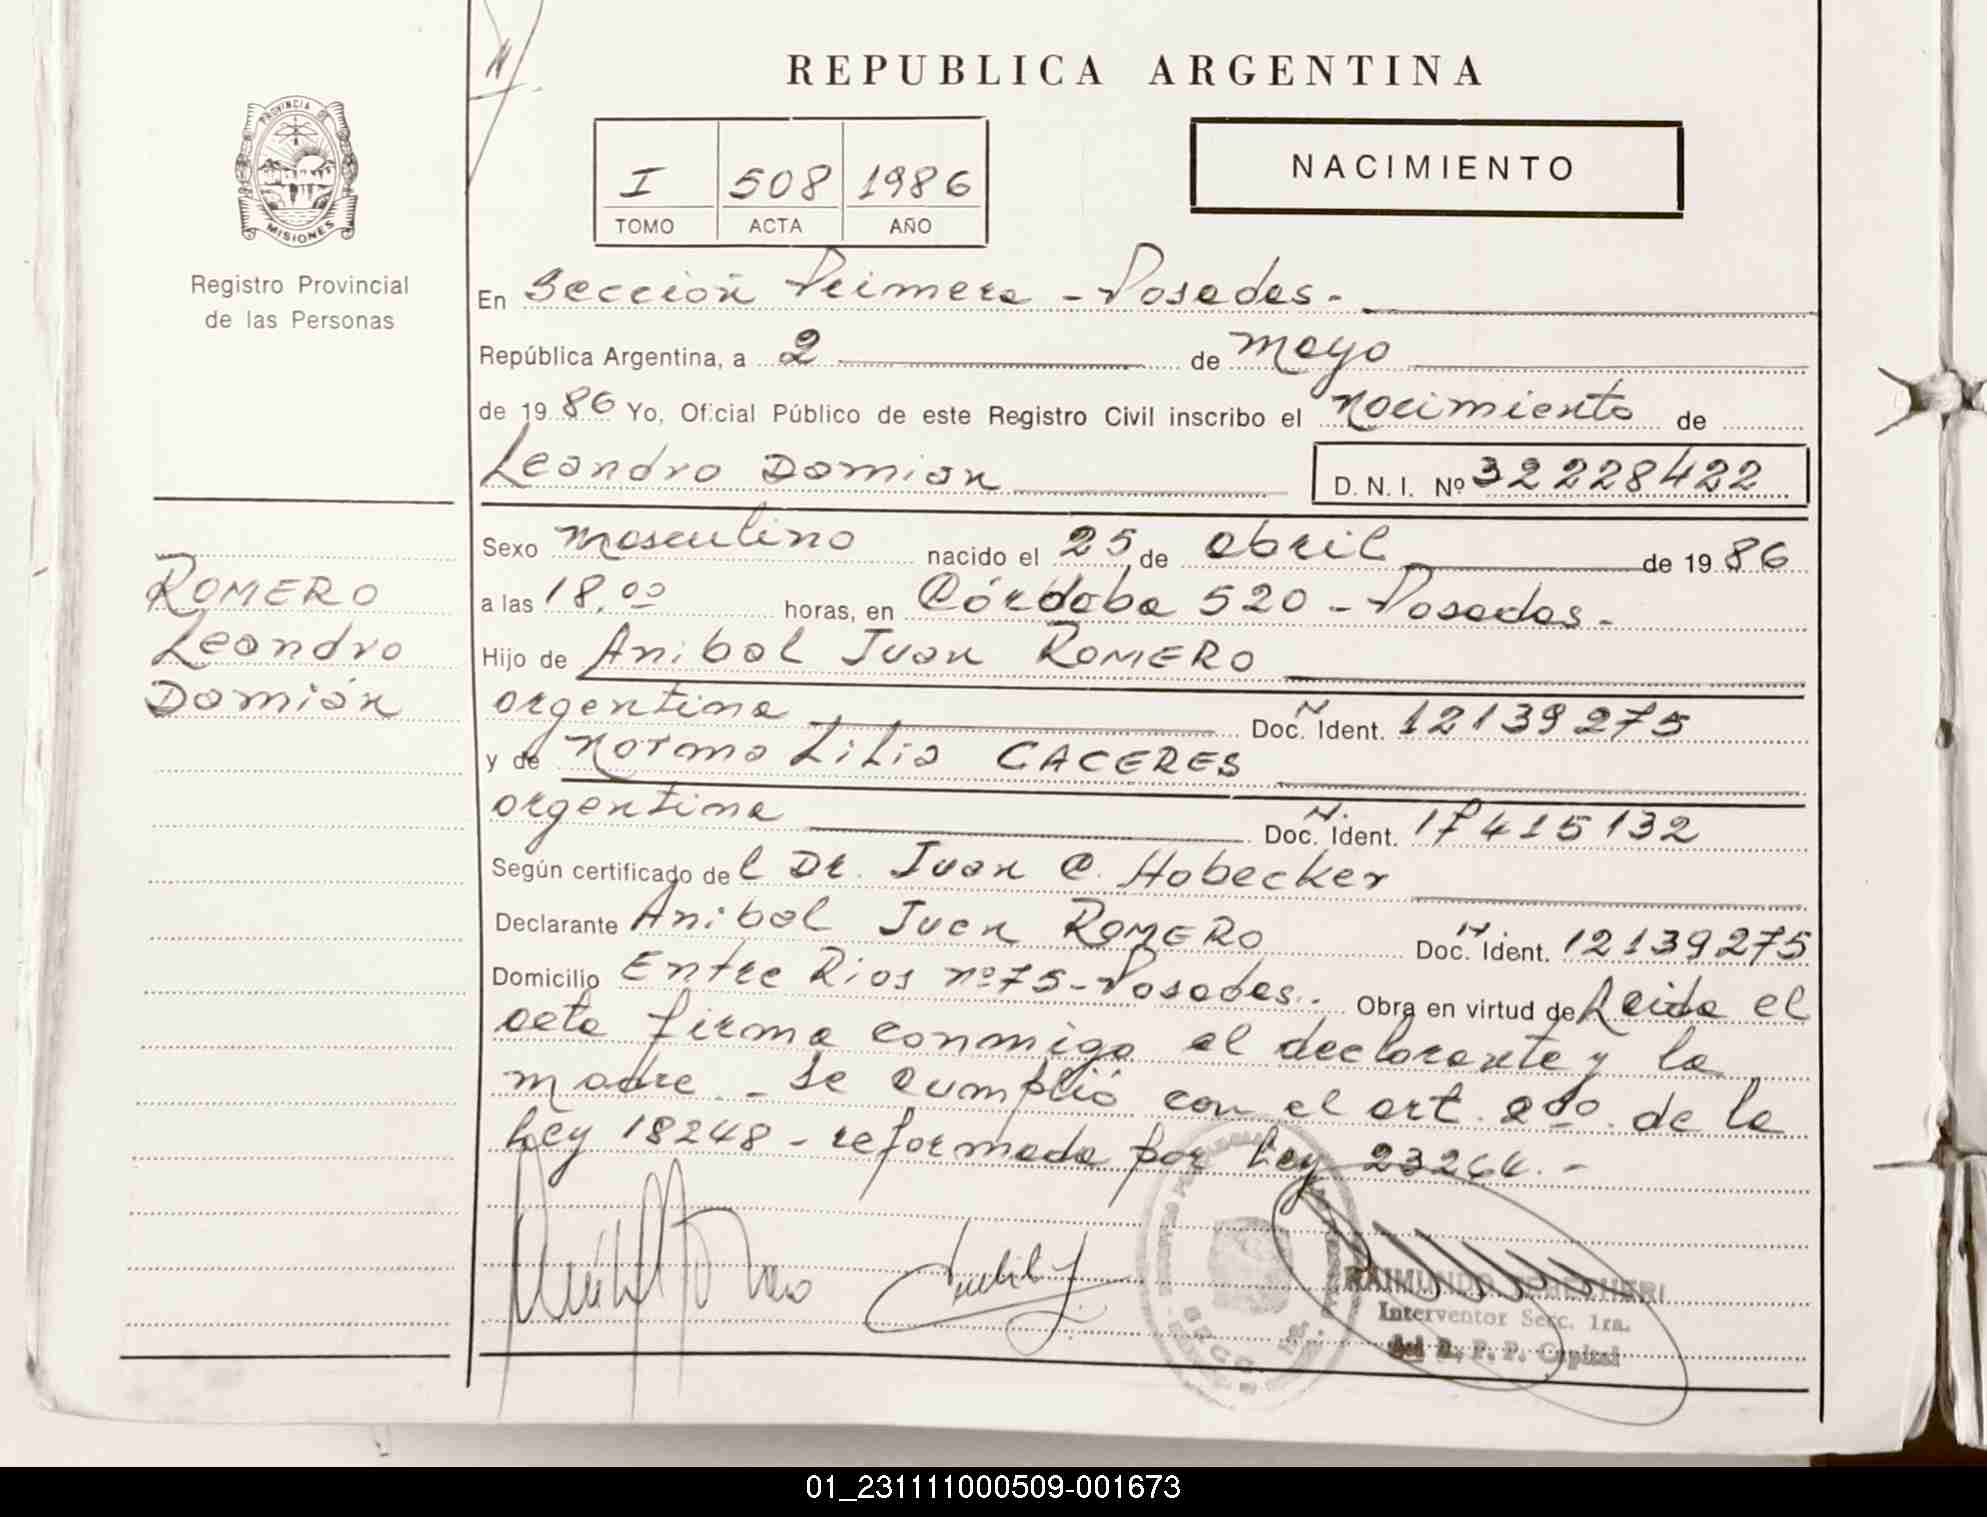 REPUBLICA ARGENTINA
PROVINCIA DE
MISIONES
Registro Provincial
de las Personas
I 508 1986
TOMO ACTA AÑO
NACIMIENTO
En Sección Primera - Posadas -
República Argentina, a 2 de mayo
de 1986 Yo, Oficial Público de este Registro Civil inscribo el nacimiento de
Leandro Damian D. N. I. Nº 32228422
Sexo masculino nacido el 25 de abril de 1986
a las 18,00 horas, en Córdoba 520 - Posadas -
Hijo de Anibal Juan ROMERO
argentina Doc. N. Ident. 12139275
y de Norma Lilia CACERES
argentina Doc. N. Ident. 17415132
Según certificado del Dr. Juan C. Hobecker
Declarante Anibal Juan ROMERO Doc. N. Ident. 12139275
Domicilio Entre Rios nº 75 - Posadas. Obra en virtud de Leida el
acta firma conmigo el declarante y la
madre - Se cumplió con el art. 2do. de la
Ley 18248 - reformada por Ley 23264. -
ROMERO
Leandro
Damián
RAIMUNDO
Interventor Secc. 1ra.
del R. P. P. Capital
01_231111000509-001673